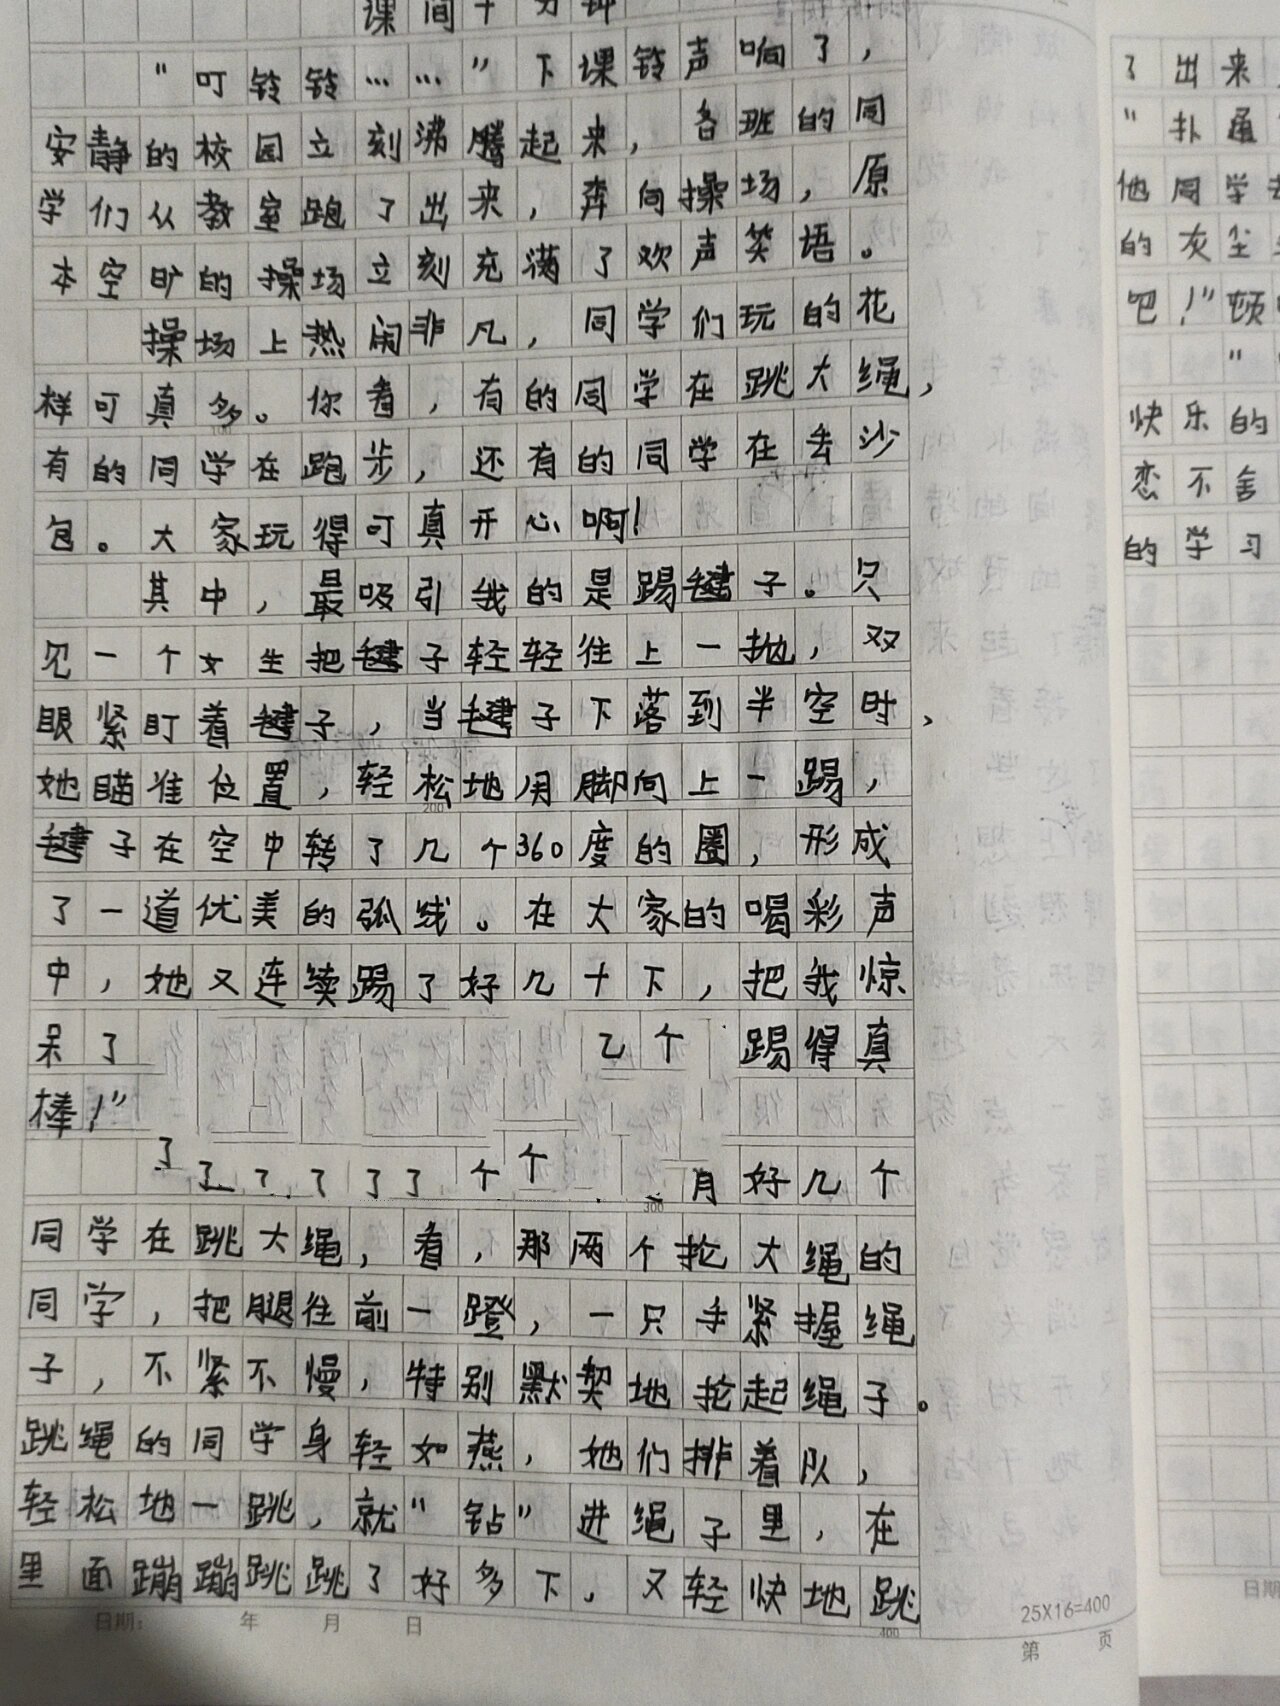 课间十分钟
“叮铃铃……”下课铃声响了，
安静的校园立刻沸腾起来，各班的同
学们从教室跑了出来，奔向操场，原
本空旷的操场立刻充满了欢声笑语。
操场上热闹非凡，同学们玩的花
样可真多。你看，有的同学在跳大绳，
有的同学在跑步，还有的同学在丢沙
包。大家玩得可真开心啊！
其中，最吸引我的是踢毽子。只
见一个女生把毽子轻轻往上一抛，双
眼紧盯着毽子，当毽子下落到半空时，
她瞄准位置，轻松地用脚向上一踢，
毽子在空中转了几个360度的圈，形成
了一道优美的弧线。在大家的喝彩声
中，她又连续踢了好几十下，把我惊
呆了 个 踢得真
棒！”
了了了了了了个个 月好几个
同学在跳大绳，看，那两个抡大绳的
同学，把腿往前一蹬，一只手紧握绳
子，不紧不慢，特别默契地抡起绳子。
跳绳的同学身轻如燕，她们排着队，
轻松地一跳，就“钻”进绳子里，在
里面蹦蹦跳跳了好多下，又轻快地跳
日期： 年 月 日
25X16=400
第 页
100
200
300
400
了出来
“扑通
他同学
的灰尘
吧！”顿
“
快乐的
恋不舍
的学习
日期